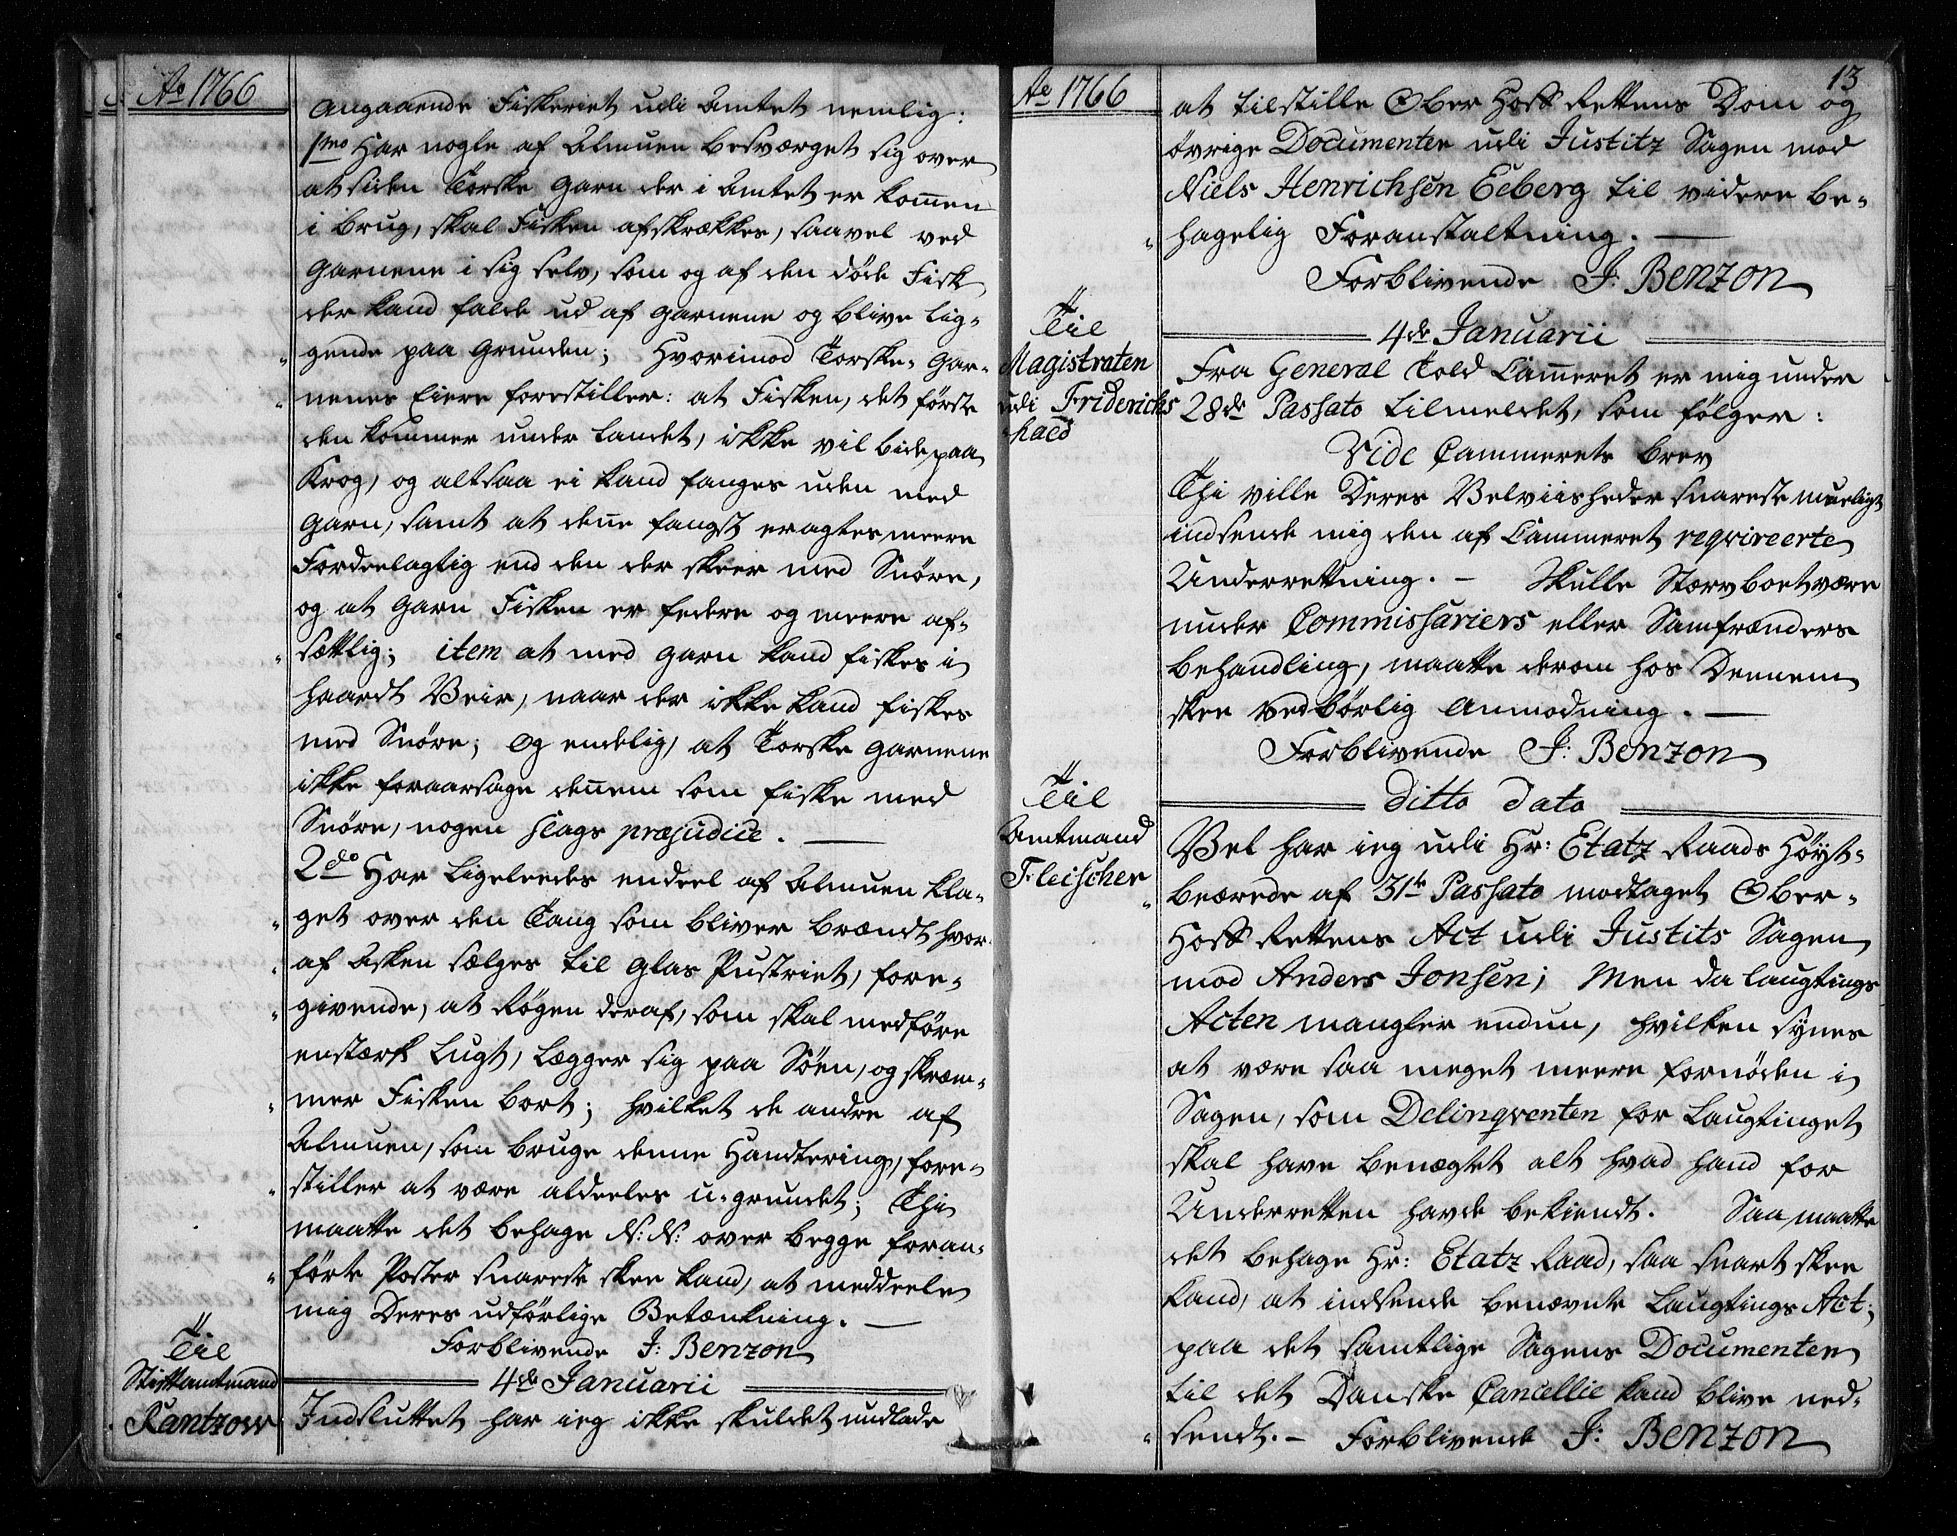 Ao 1766
angaaende Fiskeriet udi Amtet nemlig:
1mo Har nogle af Almuen besværget sig over
at siden Torske Garn der i Amtet er kommen
i brug, skal Fisken afskrækkes, saavel ved
Garnene i sig selv, som og af den døde Fisk
der kand falde ud af garnene og blive lig-
gende paa Grunden; Hvorimod Torske- Gar-
nenes Eiere forestiller: at Fisken, det første
den kommer under Landet, ikke vil bide paa
Krog, og altsaa ei kand fanges uden med
Garn, samt at denne fangst eragtes meere
Fordeelagtig end den der skeer med Snøre,
og at Garn Fisken er federe og meere af-
sættlig; item at med Garn kand fiskes i
haardt Veir, naar der ikke kand fiskes
med Snøre; og endelig, at Torske garnene
ikke foraarsage dennem som fiske med
Snøre, nogen slags præjudice.
2do Har Ligeledes endeel af Almuen kla-
get over den Tang som bliver brændt hvor-
af Asken sælges til Glas Pusteriet, fore-
givende, at Røgen deraf, som skal medføre
en stærk Lugt, lægger sig paa Søen, og skræm-
mer Fisken bort; hvilket de andre af
Almuen, som bruge denne Handtering, fore-
stiller at være aldeeles u-grundet; Thi
maatte det behage N: N: over begge foran-
førte Poster snarest skee kand, at meddeele
mig Deres udførlige Betænkning.
Forblivende J: Benzon
Til
Stiftamtmand
Rantzow
4de Januarii
Indsluttet har ieg ikke skuldet undlade
Ao 1766
13
at tilstille Ober Hoff Rettens Dom og
øvrige Documenter udi Justitz Sagen mod
Niels Henrichsen Eeberg til videre be-
hagelig Foranstaltning.
Forblivende J: Benzon
Til
Magistraten
udi Friderichs
hald
4de Januarii
Fra General Told Cammeret er mig under
28de Passato tilmeldet, som følger:
Vide Cammerets brev
Thi ville Deres Velviisheder snarest mueligt
indsende mig den af Cammeret reqvireerte
Underrettning. - Skulle Stervboet være
under Commissariers eller Samfrænders
behandling, maatte derom hos Dennem
skee vedbørlig Anmodning.
Forblivende J: Benzon
Til
Amtmand
Fleischer
ditto dato
Vel har ieg udi Hr: Etatz Raads Høyst-
beærede af 31te Passato modtaget Ober-
Hoff Rettens Act udi Justits Sagen
mod Anders Jonsen; Men da Laugtings
Acten mangler endnu, hvilken synes
at være saa meget meere fornøden i
Sagen, som Delinqventen for Laugtinget
skal have benægtet alt hvad hand for
Underretten havde bekiendt. Saa maatte
det behage Hr: Etatz Raad, saa snart skee
kand, at indsende benævnte Laugtings Act;
paa det samtlige Sagens Documenter
til det Danske Cancellie kand blive ned-
sendt. - Forblivende J: Benzon